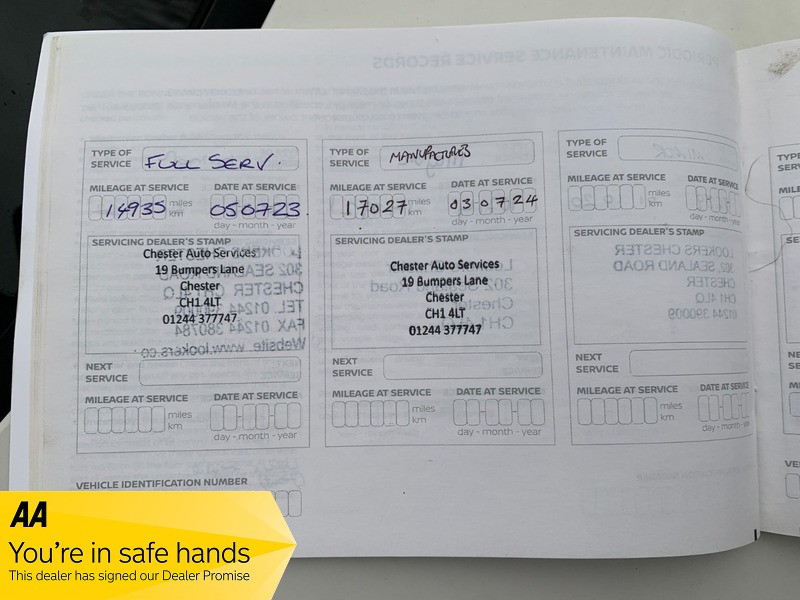 PERIODIC MAINTENANCE SERVICE RECORDS
TYPE OF SERVICE FULL SERV.
MILEAGE AT SERVICE DATE AT SERVICE
14935 miles km 050723
day - month - year
SERVICING DEALER'S STAMP
Chester Auto Services
19 Bumpers Lane
Chester
CH1 4LT
01244 377747
NEXT SERVICE
MILEAGE AT SERVICE DATE AT SERVICE
miles km
day - month - year
VEHICLE IDENTIFICATION NUMBER
TYPE OF SERVICE MANUFACTURES
MILEAGE AT SERVICE DATE AT SERVICE
17027 miles km 030724
day - month - year
SERVICING DEALER'S STAMP
Chester Auto Services
19 Bumpers Lane
Chester
CH1 4LT
01244 377747
NEXT SERVICE
MILEAGE AT SERVICE DATE AT SERVICE
miles km
day - month - year
TYPE OF SERVICE
MILEAGE AT SERVICE DATE AT
miles km
day - month
SERVICING DEALER'S STAMP
LOOKERS CHESTER
302, SEALAND ROAD
CHESTER
CH1 4LQ
01244 390009
NEXT SERVICE
MILEAGE AT SERVICE DATE AT
miles km
day - month
AA
You're in safe hands
This dealer has signed our Dealer Promise